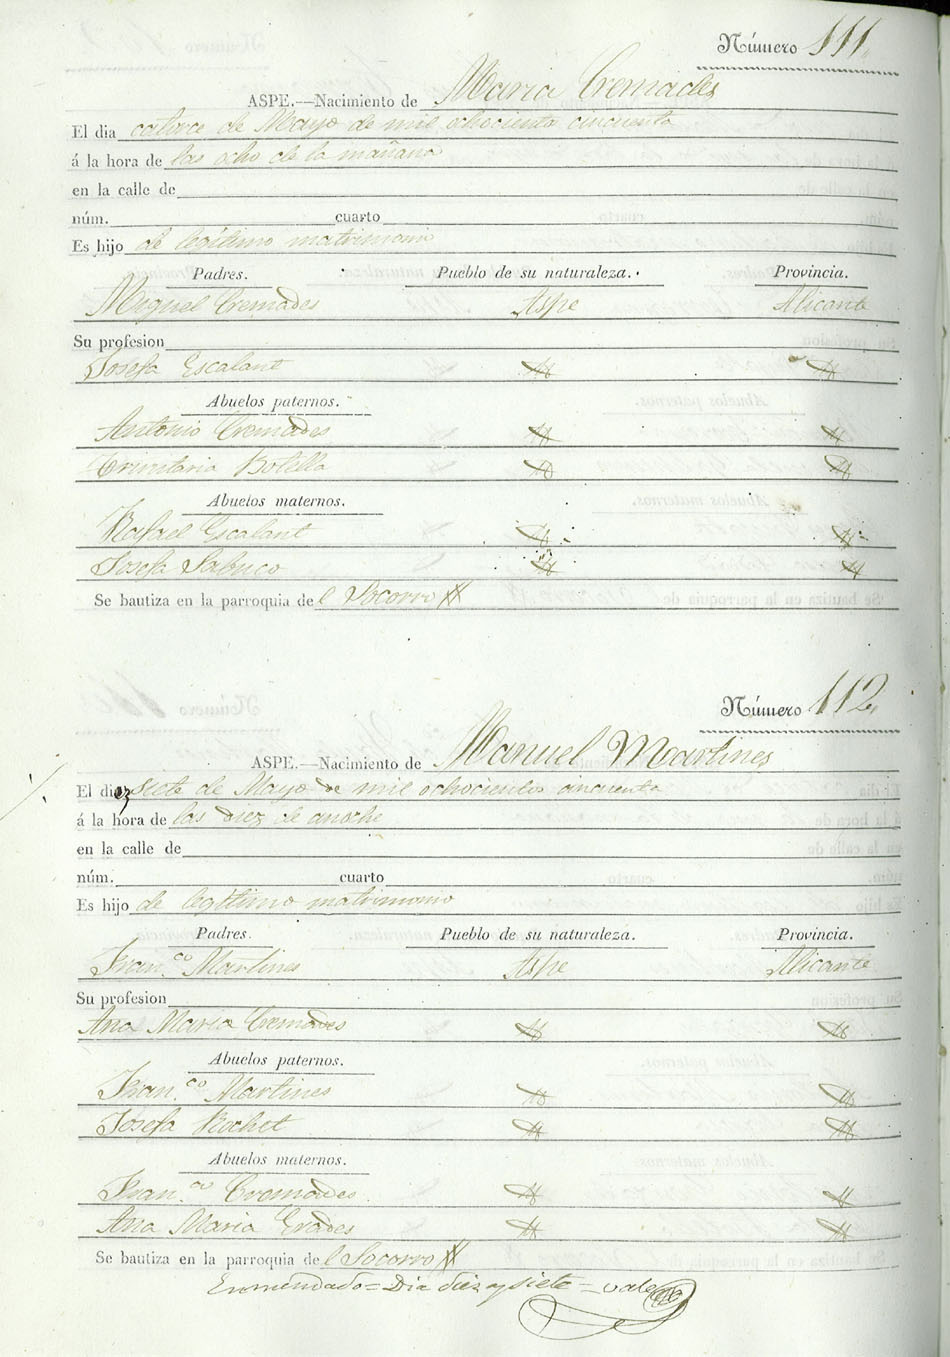 Número 111.
ASPE.—Nacimiento de Maria Cremades
El dia catorce de Mayo de mil ochociento cincuenta
á la hora de las ocho de la mañana
en la calle de
núm. cuarto
Es hijo de legítimo matrimonio
Padres. Pueblo de su naturaleza. Provincia.
Miguel Cremades Aspe Alicante
Su profesion
Josefa Escalant
Abuelos paternos.
Antonio Cremades
Botella
Abuelos maternos.
Rafael Escalant
Josefa Sabuco
Se bautiza en la parroquia del Socorro
Número 112.
ASPE.—Nacimiento de Manuel Martines
El diez siete de Mayo de mil ochocientos cincuenta
á la hora de las diez de anoche
en la calle de
núm. cuarto
Es hijo de legítimo matrimonio
Padres. Pueblo de su naturaleza. Provincia.
Fran.co Martines Aspe Alicante
Su profesion
Ana Maria Cremades
Abuelos paternos.
Fran.co Martines
Josefa Rochet
Abuelos maternos.
Fran.co Cremades
Ana Maria Erades
Se bautiza en la parroquia del Socorro
Enmendado = Dia diez y siete = vale